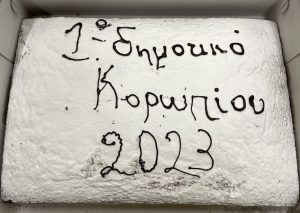 1º δημοτικό
Κορωπίου
2023